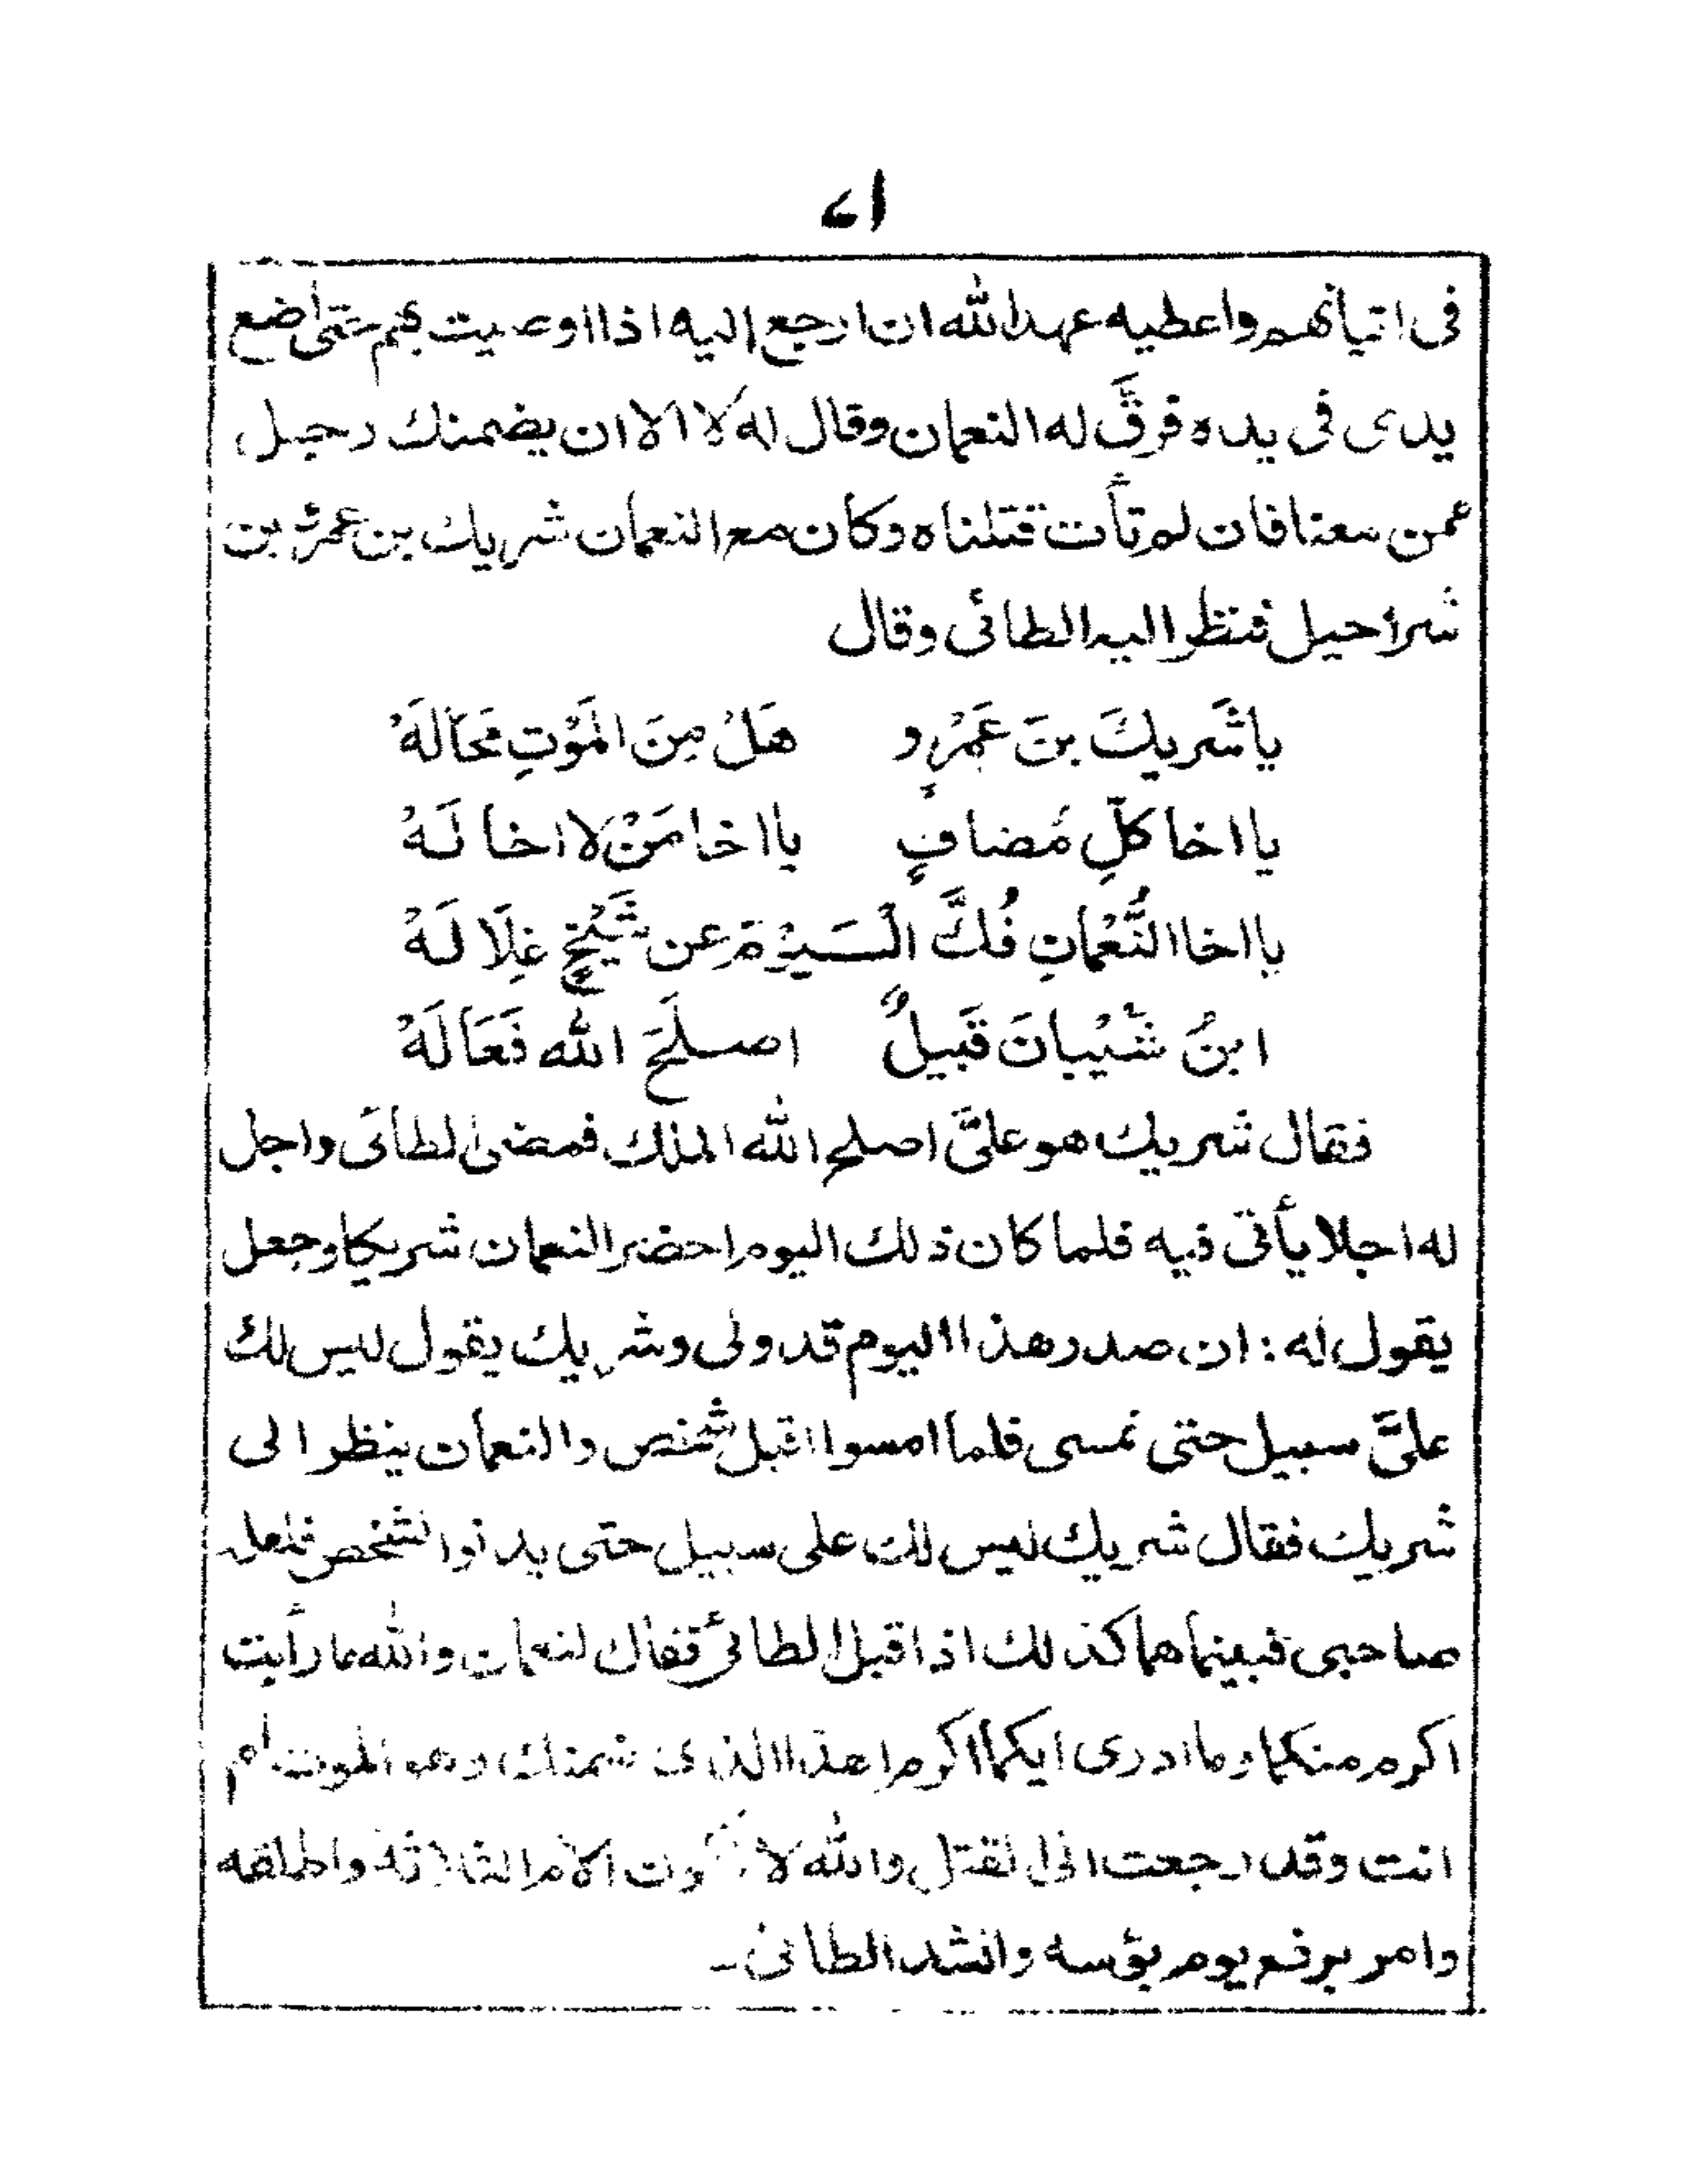 ٤١
فى اتيأنهم واعطيه عهد الله ان ارجع إليه اذا اوصيت بهم حتى اضع
يدى فى يده فرقَّ له النعمان وقال له لا الا ان يضمنك رجل
عمن معنا فان لم تأت قتلناه وكان مع النعمان شريك بن عمرو بن
شراحيل فنظر اليه الطائى وقال
يا شَريكَ بنَ عَمْرٍو هَلْ مِنَ الَمَوْتِ مَحَالَهْ
يا اخا كلِّ مُضافٍ يا اخا مَنْ لا اخا لَهْ
يا اخا النُّعْمانِ فُكَّ الْسَيرْمَ عن شَيْخٍ غِلَالَهْ
ابنُ شَيْبانَ قَبيلٌ اصلَحَ الله فَعَالَهْ
فقال شريك هو علىَّ اصلح الله الملك فمضى الطائى واجل
له اجلا يأتى فيه فلما كان ذلك اليوم احضر النعمان شريكا وجعل
يقول له : ان صدر هذا اليوم قد ولى وشريك يقول ليس لك
علىَّ سبيل حتى نمسى فلما امسوا اقبل شخص والنعمان ينظر الى
شريك فقال شريك ليس لك على سبيل حتى يدنوا لشخص فلعله
صاحبى فبينما هما كذلك اذ اقبل الطائى فقال لنعمان والله ما رأيت
اكرم منكما وما ادرى ايكما اكرم اهذا الذى ضمنك وهو الموت أم
انت وقد رجعت الى لقتل والله لا اكون الأم الثلاثة واطلقه
وامر برفع يوم بؤسه وانشد الطائى ـ